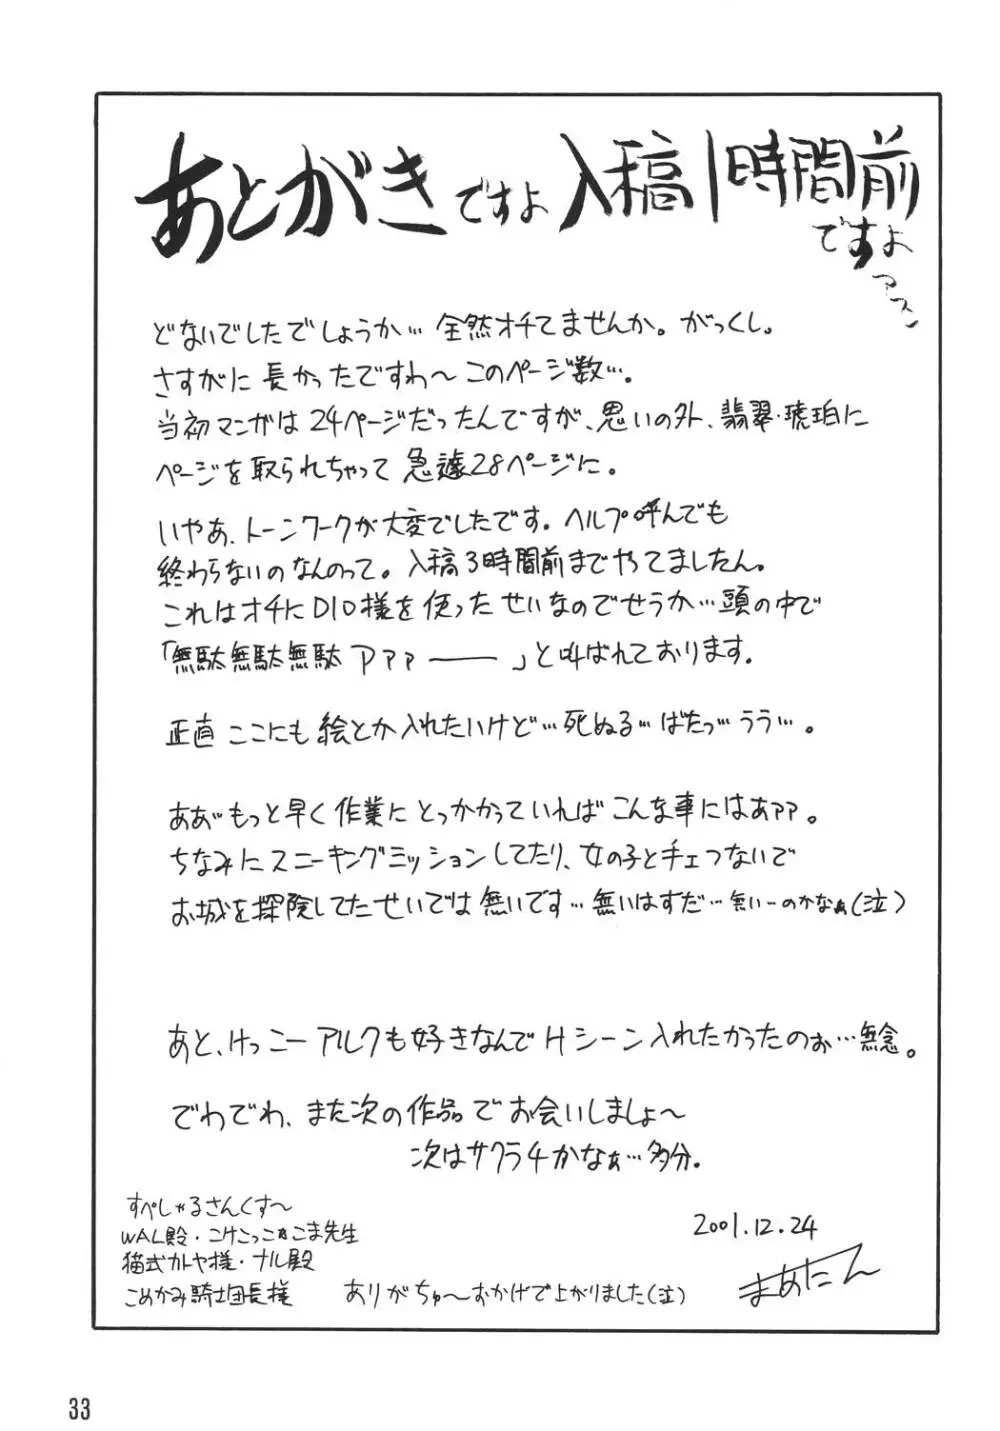 あとがきですよ 入稿1時間前
ですよ
アスン
どないでしたでしょうか… 全然オチてませんか。がっくし。
さすがに長かったですわ〜このページ数…。
当初マンガは24ページだったんですが、思いの外、翡翠・琥珀に
ページを取られちゃって急遽28ページに。
いやぁ、トーンワークが大変でしたです。ヘルプ呼んでも
終わらないのなんのって。入稿3時間前までやってましたん。
これはオチにDIO様を使ったせいなのでせうか…頭の中で
「無駄無駄無駄アァァ――」と叫ばれております。
正直ここにも絵とか入れたいけど…死ぬる…ばたっ…うう…。
ああ…もっと早く作業にとっかかっていればこんな事にはあァァ。
ちなみにスニーキングミッションしてたり、女の子とチェつないで
お城を探険してたせいでは無いです…無いはずだ…無いーのかなぁ(泣)
あと、けっこーアルクも好きなんでHシーン入れたかったのぉ…無念。
でわでわ、また次の作品でお会いしましょ〜
次はサクラ4かなぁ…多分。
すぺしゃるさんくす〜
WAL殿・こけこっこ☆こま先生
猫式カトヤ様・ナル殿
こめかみ騎士団長様 ありがちゅ〜おかげで上がりました(泣)
2001.12.24
まあたん
33